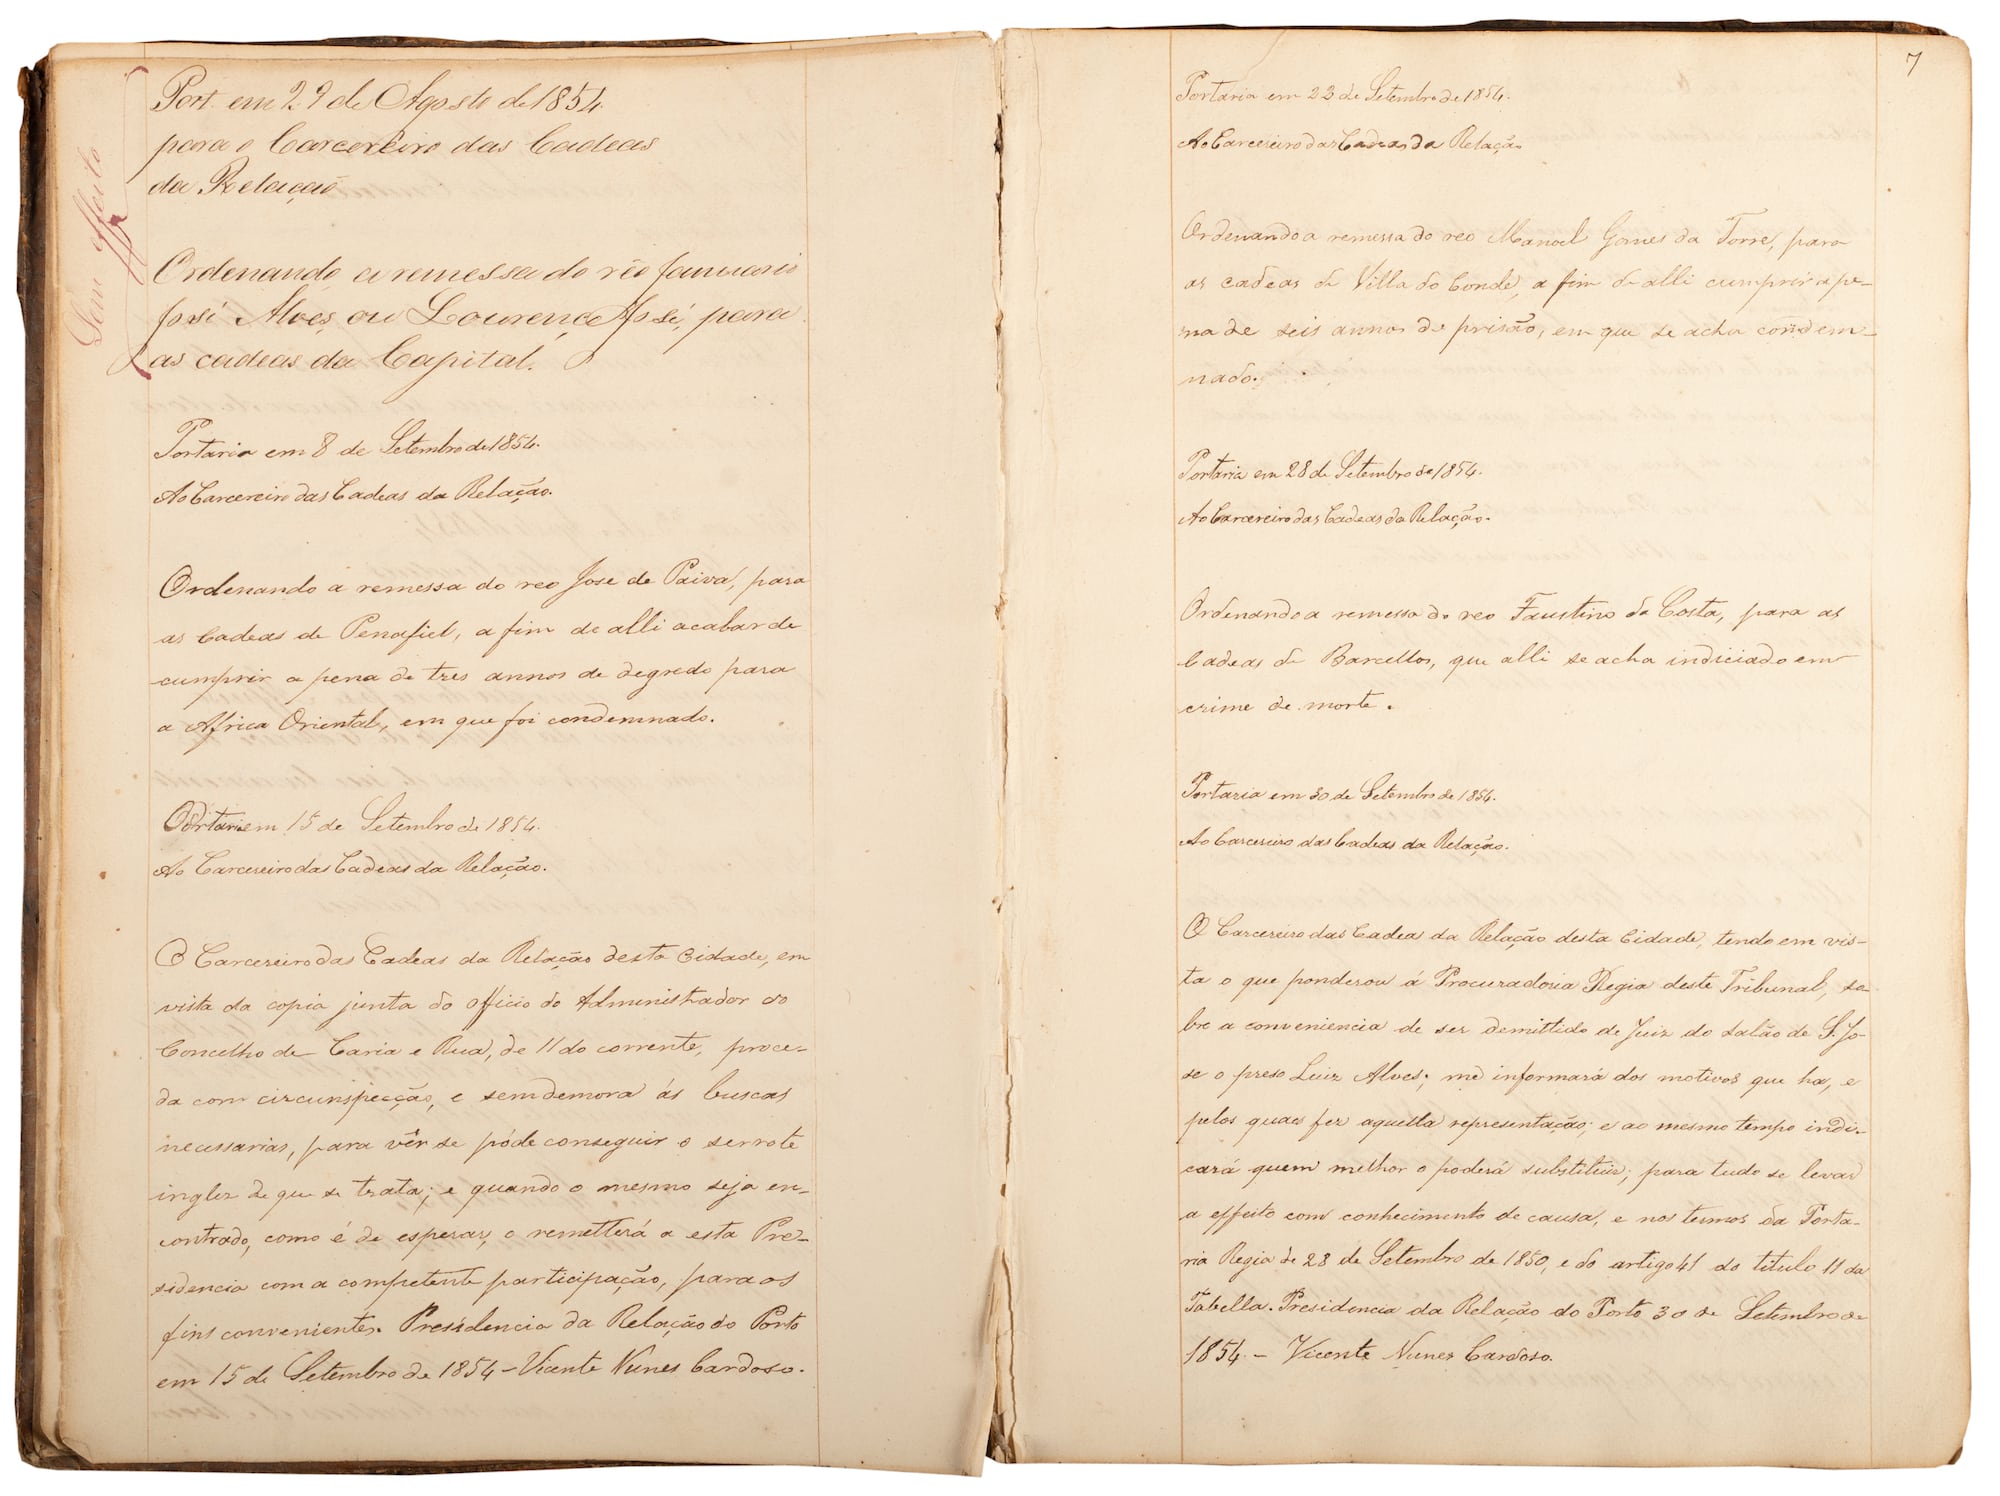 Sem effeito
Port. em 29 de Agosto de 1854.
para o Carcereiro das Cadeas
da Relação
Ordenando, a remessa do réo Januario
José Alves, ou Lourenço José, para
as cadeas da Capital.
Portaria em 8 de Setembro de 1854.
Ao Carcereiro das Cadeas da Relação.
Ordenando a remessa do reo Jose de Paiva, para
as Cadeas de Penafiel, a fim de alli acabar de
cumprir a pena de tres annos de degredo para
a Africa Oriental, em que foi condemnado.
Portaria em 15 de Setembro de 1854.
Ao Carcereiro das Cadeas da Relação.
O Carcereiro das Cadeas da Relação desta Cidade, em
vista da copia junta do officio do Administrador do
Concelho de Caria e Rua, de 11 do corrente, proce-
da com circunspecção, e sem demora ás buscas
necessarias, para vêr se póde conseguir o serrote
inglez de que se trata; e quando o mesmo seja en-
contrado, como é de esperar, o remetterá a esta Pre-
sidencia com a competente participação, para os
fins convenientes. Presidencia da Relação do Porto
em 15 de Setembro de 1854 - Vicente Nunes Cardoso.
7
Portaria em 23 de Setembro de 1854.
Ao Carcereiro das Cadeas da Relação
Ordenando a remessa do reo Manoel Gomes da Torre, para
as cadeas de Villa do Conde, a fim de alli cumprir a pe-
na de seis annos de prisão, em que se acha condem-
nado.
Portaria em 28 de Setembro de 1854.
Ao Carcereiro das Cadeas da Relação.
Ordenando a remessa do reo Faustino da Costa, para as
Cadeas de Barcellos, que alli se acha indiciado em
crime de morte.
Portaria em 30 de Setembro de 1854.
Ao Carcereiro das Cadeas da Relação.
O Carcereiro das Cadeas da Relação desta Cidade, tendo em vis-
ta o que ponderou á Procuradoria Regia deste Tribunal, so-
bre a conveniencia de ser demittido de Juiz do salão de S. Jo-
se o preso Luiz Alves; me informará dos motivos que ha, e
pelos quaes fez aquella representação; e ao mesmo tempo indi-
cará quem melhor o poderá substituir; para tudo se levar
a effeito com conhecimento de causa, e nos termos da Porta-
ria Regia de 28 de Setembro de 1850, e do artigo 41 do titulo 11 da
Tabella. Presidencia da Relação do Porto 30 de Setembro de
1854. - Vicente Nunes Cardoso.